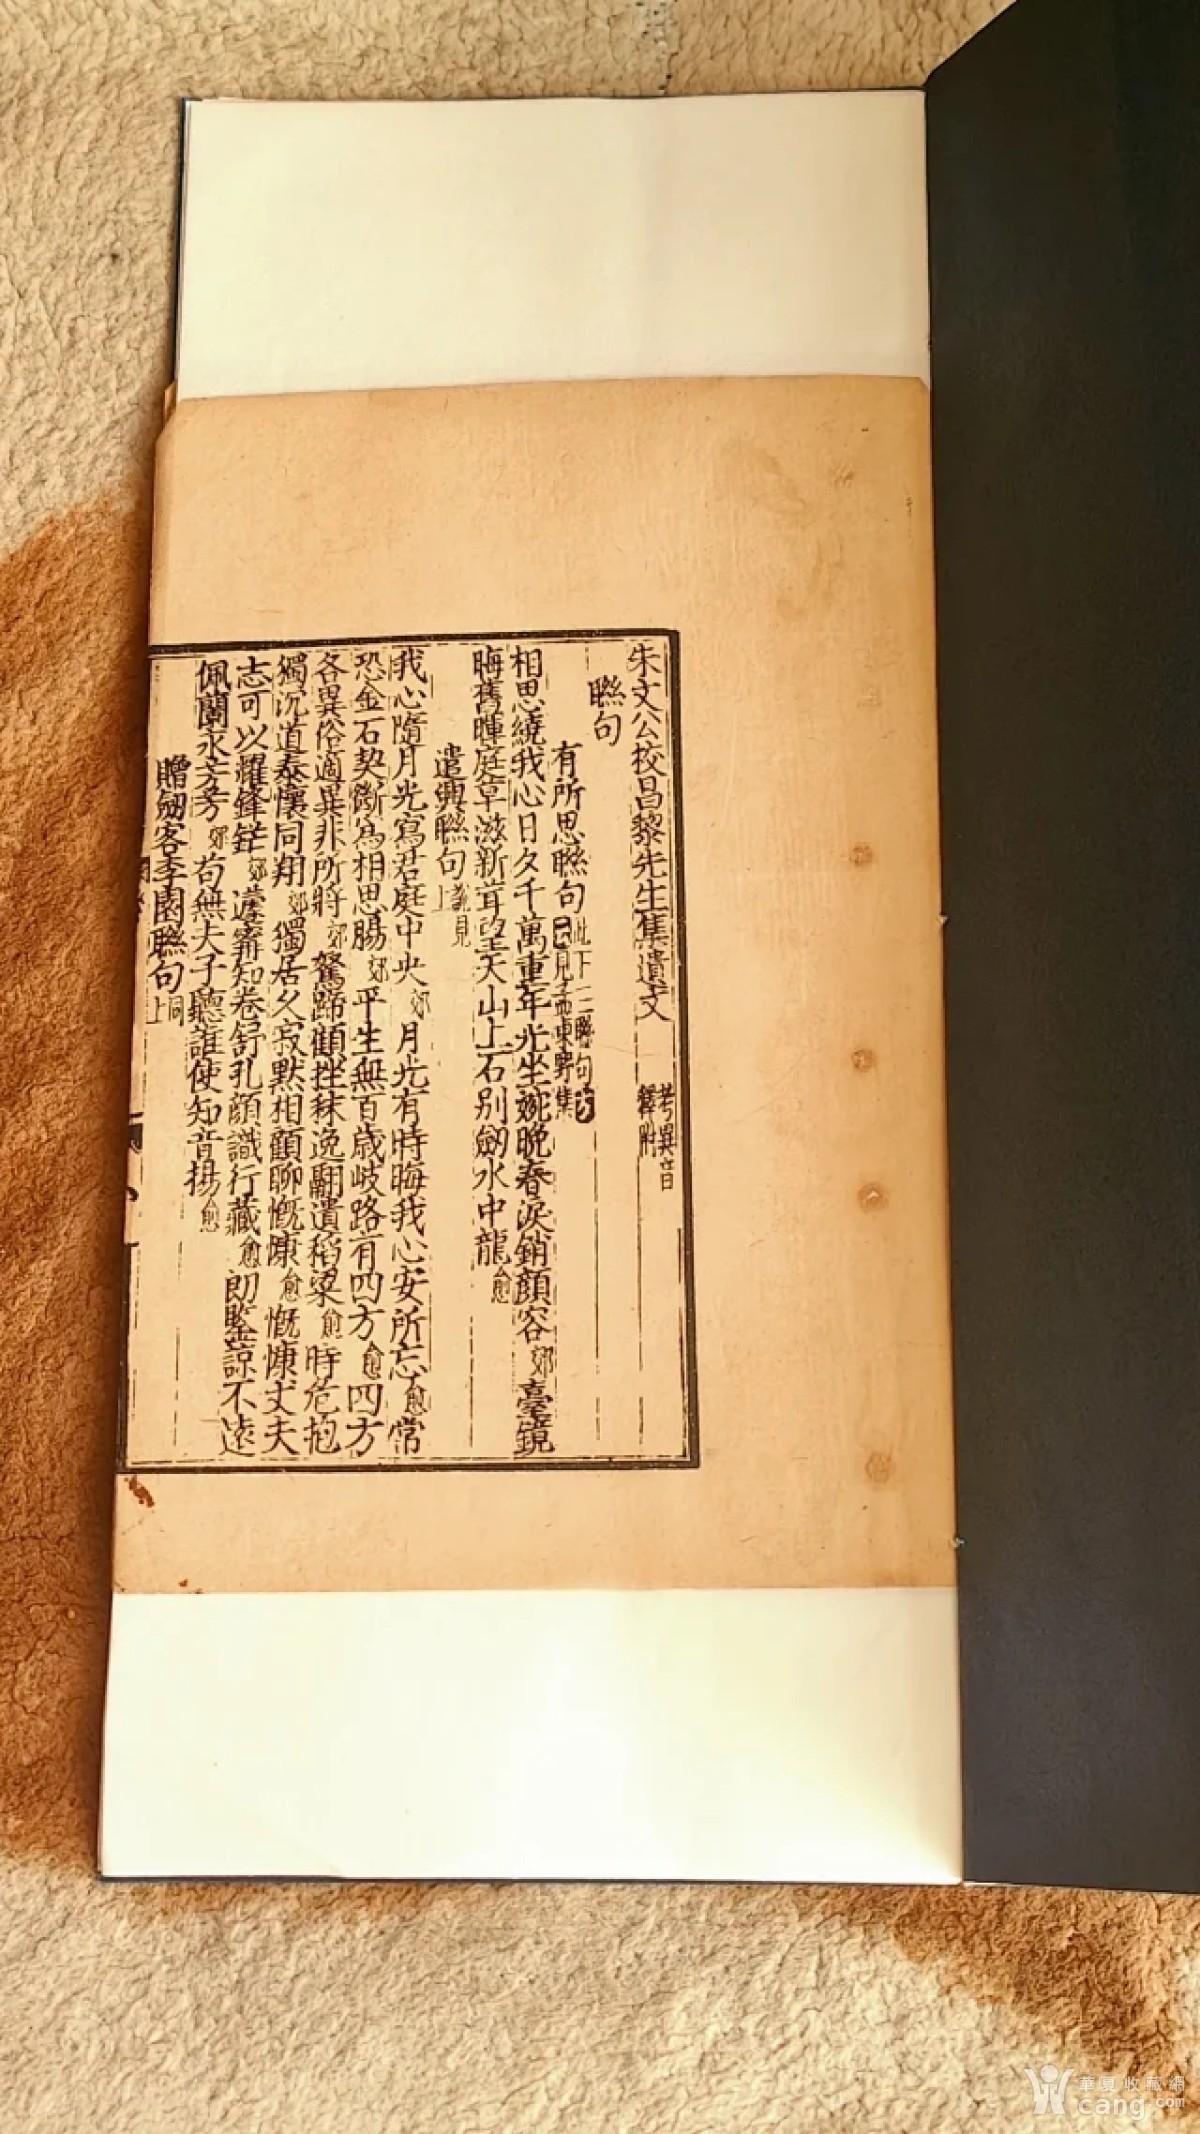 朱文公校昌黎先生集遺文 考異音釋附
聮句
有所思聮句 此下二聮句方已見孟東野集
相思繞我心日夕千萬重年光坐婉晚春淚銷顔容 郊 臺鏡
晦舊暉庭草滋新茸望夫山上石别劒水中龍 愈
遣興聮句 義見上
我心隨月光寫君庭中央 郊 月光有時晦我心安所忘 愈 常
恐金石契斷爲相思腸 郊 平生無百歳岐路有四方 愈 四方
各異俗適異非所將 郊 駑蹄顧挫秣逸翮遺稻粱 愈 時危抱
獨沉道泰懷同翔 郊 獨居久寂默相顧聊慨慷 愈 慨慷丈夫
志可以耀鋒鋩 郊 蘧寗知卷舒孔顔識行藏 愈 朗鑒諒不遠
佩蘭永芬芳 郊 茍無夫子聽誰使知音揚 愈
贈劒客李園聮句 同上
華夏收藏網
cang.com